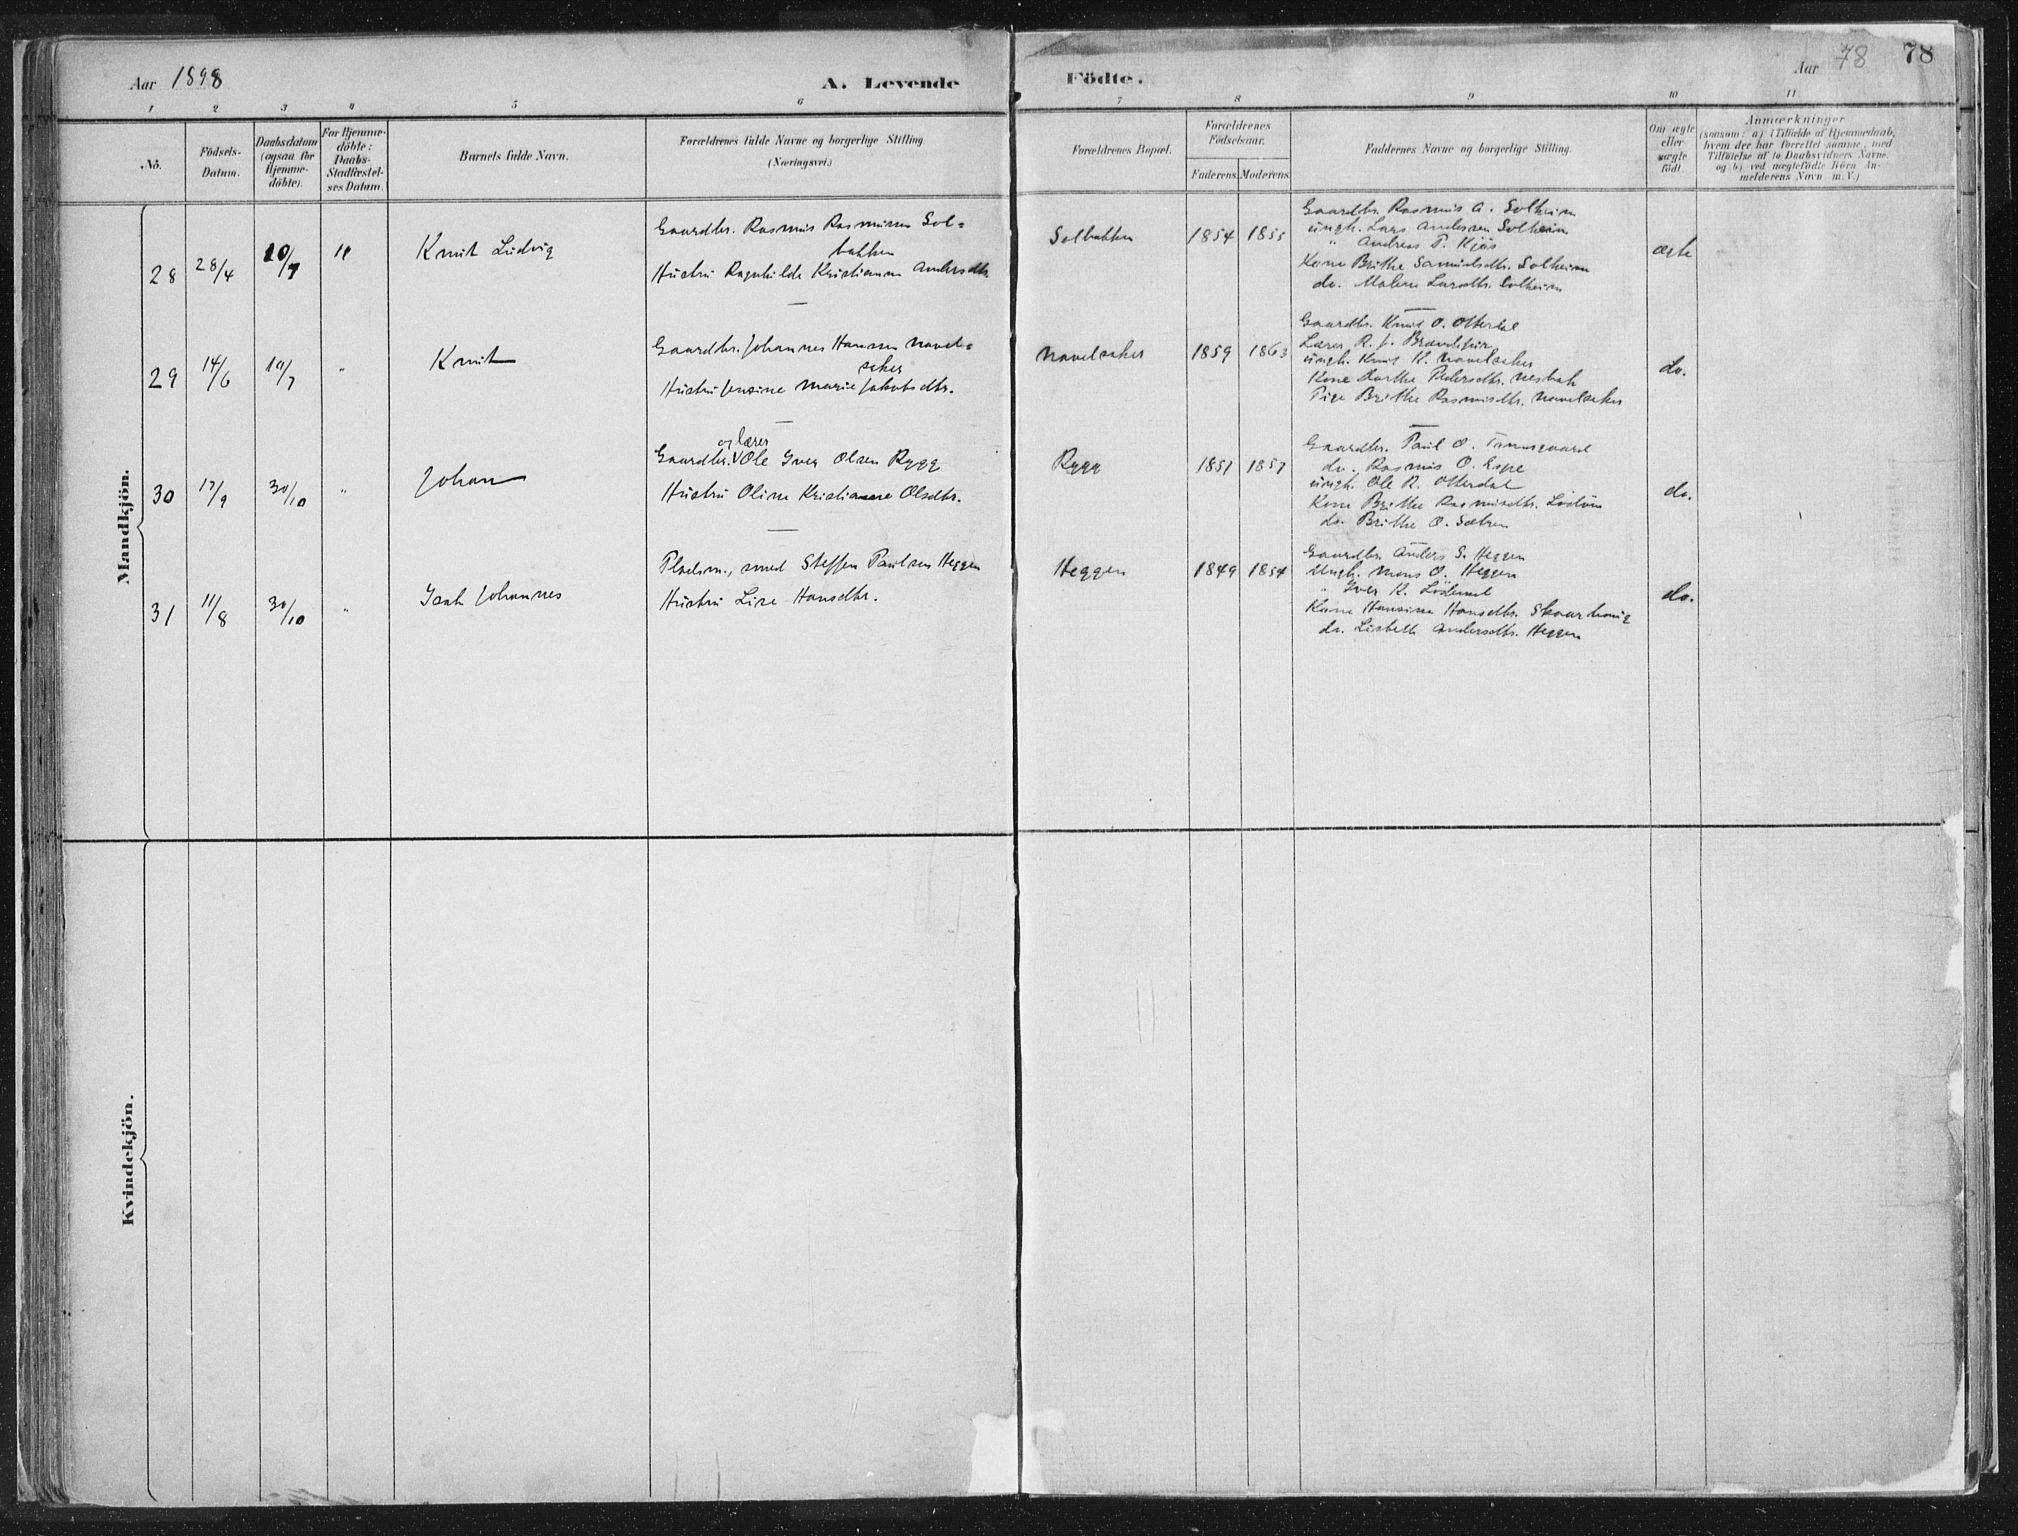 Aar 1898
A. Levende
Födte.
Aar 78 78
1 2 3 4 5 6 7 8 9 10 11
No.
Födsels-
Datum.
Daabsdatum
(ogsaa for
Hjemme-
döbte).
For Hjemme-
döbte:
Daabs-
Stadfæstel-
ses Datum.
Barnets fulde Navn.
Forældrenes fulde Navne og borgerlige Stilling
(Næringsvei.)
Forældrenes Bopæl.
Forældrenes
Födselsaar.
Faderens. Moderens.
Faddernes Navne og borgerlige Stilling.
Om ægte
eller
uægte
födt
Anmærkninger
(saasom: a) i Tilfælde af Hjemmedaab,
hvem der har forrettet samme, med
Tilföielse af to Daabsvidners Navne,
og b) ved uægtefödte Börn An-
melderens Navn m. V.)
Mandkjön.
28 28/4 10/7 " Knut Ludvig
Gaardbr. Rasmus Rasmussen Sol=
bakken
Hustru Ragnhilde Kristianne Andersdtr.
Solbakken 1854 1855
Gaardbr. Rasmus A. Solheim
ungk. Lars Andersen Solheim
" Andreas P. Kjøs
Kone Brithe Samuelsdtr. Solheim
do. Malene Larsdtr. Solheim
ægte
29 14/6 10/7 " Knut
Gaardbr. Johannes Hansen Navel=
saker
Hustru Jensine Marie Jakobsdtr.
Navelsaker 1859 1863
Gaardbr. Knut O. Otterdal
Lærer R. J.
ungk. Knut H. Navelsaker
Kone Marthe Pedersdtr. Nesbak
Pige Brithe Rasmusdtr. Navelsaker
do.
30 17/9 30/10 " Johan
og lærer
Gaardbr. V Ole Iver Olsen Rygg
Hustru Oline Kristianne Olsdtr.
Rygg 1851 1857
Gaardbr. Paul O.
do. Rasmus O. Espe
ungk. Ole R. Otterdal
Kone Brithe Rasmusdtr.
do. Brithe O. Sætren
do.
31 11/8 30/10 " Isak Johannes
Pladsm., smed Steffen Paulsen Heggen
Hustru Lise Hansdtr.
Heggen 1849 1854
Gaardbr. Anders S. Heggen
Ungk. Mons O. Heggen
" Iver K. Lødemel
Kone Hansine Hansdtr. Skaarhaug
do. Lisbeth Andersdtr. Heggen
do.
Kvindekjön.